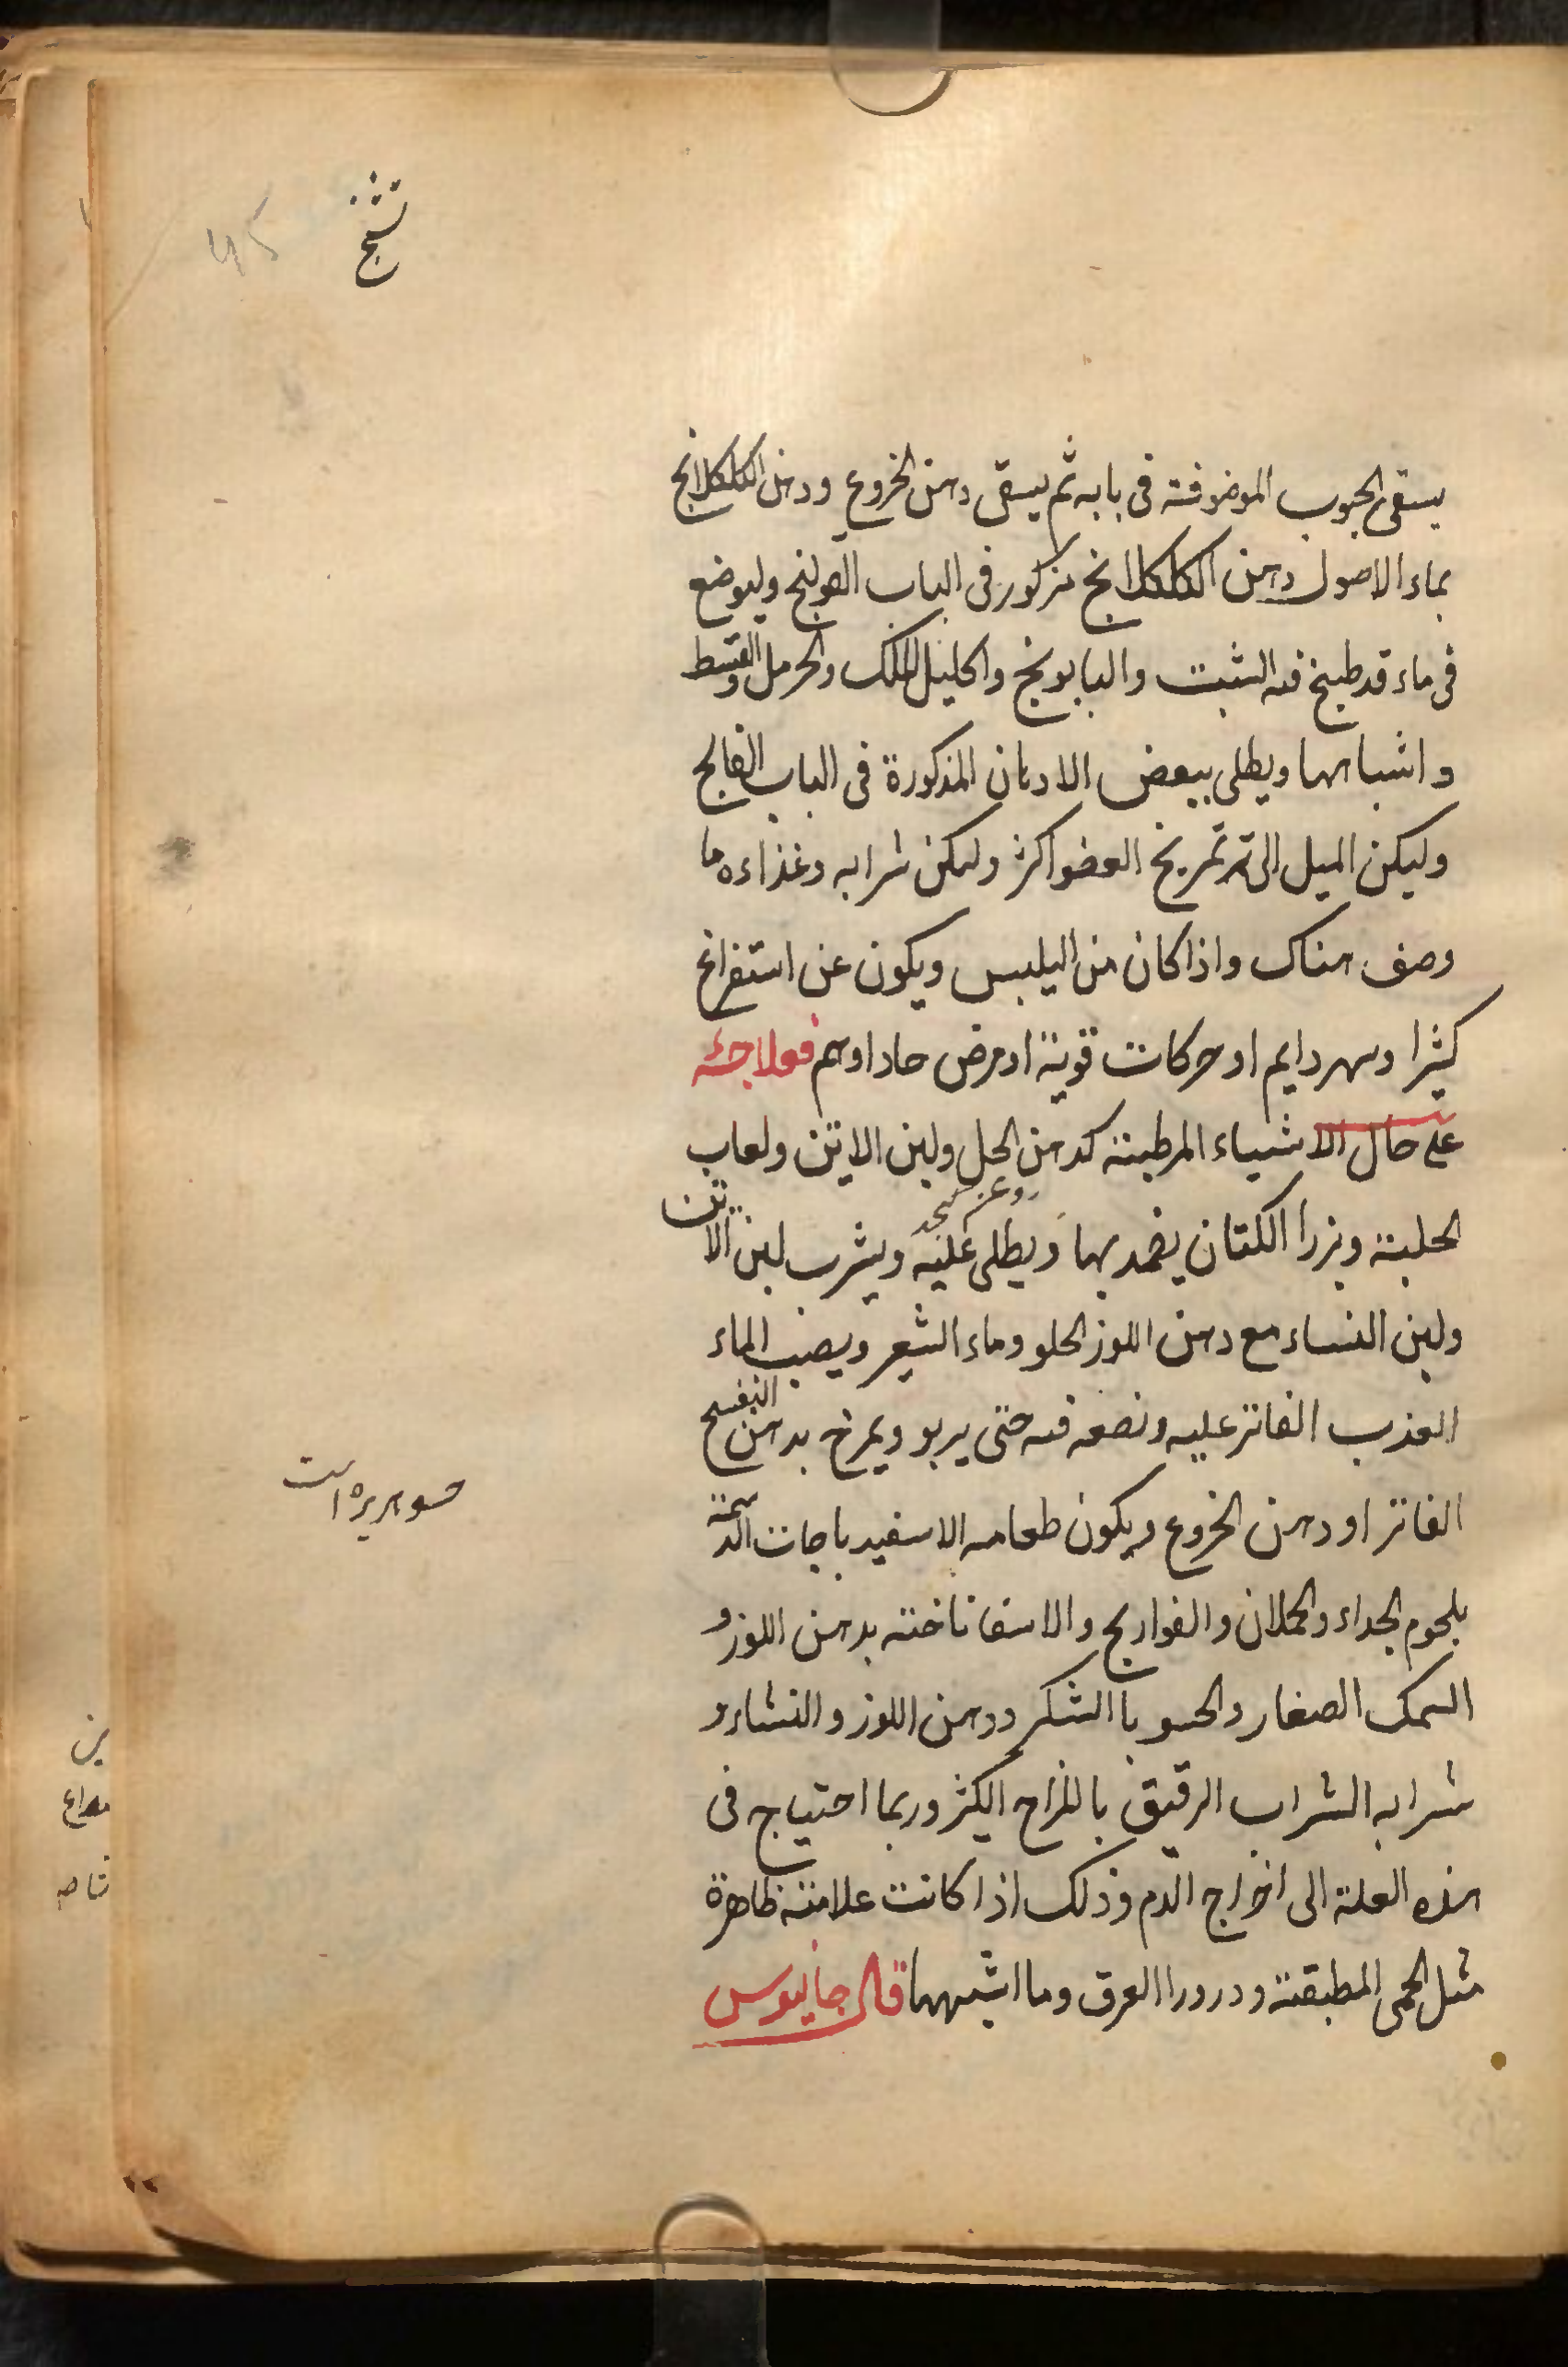 تشنج
يسقى الحبوب الموضوفة فى بابه ثم يسقى دهن الخروع ودهن الكلكلانج
بماء الاصول دهن الكلكلانج مذكور فى الباب القولنج وليوضع
فى ماء قد طبخ فيه الشبت والبابونج واكليل الملك والحرمل والقسط
واشباهها ويطلى ببعض الادهان المذكورة فى الباب الفالج
وليكن الميل الى تمريخ العضو اكثر وليكن شرابه وغذاءه ما
وصف هناك واذا كان من اليبس ويكون عن استفراغ
كثيرا وسهر دايم او حركات قوية او مرض حاد او هم فعلاجه
على حال الاشياء المرطبة كدهن الحل ولبن الاتن ولعاب
روغن كنجد
الحلبة وبزرا الكتان يضمد بها ويطلى عليه ويشرب لبن الاتن
ولبن النساء مع دهن اللوز الحلو وماء الشعير ويصب الماء
العذب الفاتر عليه ونضعه فيه حتى يربو ويمرخ بدهن البنفسج
الفاتر او دهن الخروع ويكون طعامه الاسفيدباجات الدسمة
حسو هريره است
بلحوم الجداء والحملان والفواريج والاسفاناخته بدهن اللوز و
السمك الصغار والحسو باالسكر ودهن اللوز والنشاء و
شرابه الشراب الرقيق بالمزاج الكثر وربما احتياج فى
هذه العلة الى اخراج الدم وذلك اذا كانت علامته ظاهرة
مثل الحمى المطبقة ودرورا العرق وما اشبهها قال جالينوس